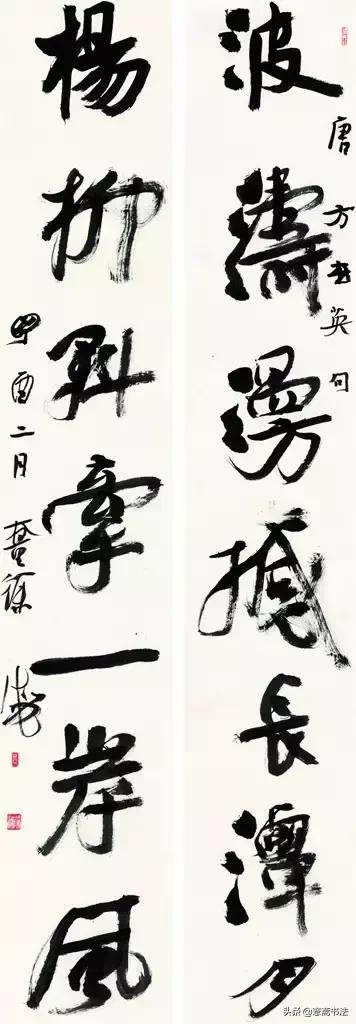 波濤漫撼長潭月
唐方玄英句
楊柳斜牽一岸風
酉二月
头条@斋书法